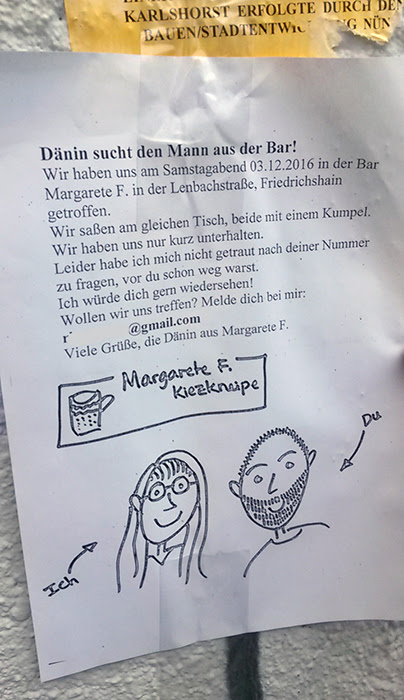 KARLSHORST ERFOLGTE DURCH DEN
BAUEN/STADTENTWIC G NÜN
Dänin sucht den Mann aus der Bar!
Wir haben uns am Samstagabend 03.12.2016 in der Bar
Margarete F. in der Lenbachstraße, Friedrichshain
getroffen.
Wir saßen am gleichen Tisch, beide mit einem Kumpel.
Wir haben uns nur kurz unterhalten.
Leider habe ich mich nicht getraut nach deiner Nummer
zu fragen, vor du schon weg warst.
Ich würde dich gern wiedersehen!
Wollen wir uns treffen? Melde dich bei mir:
r @gmail.com
Viele Grüße, die Dänin aus Margarete F.
Margarete F.
Kiezkneipe
Du
Ich